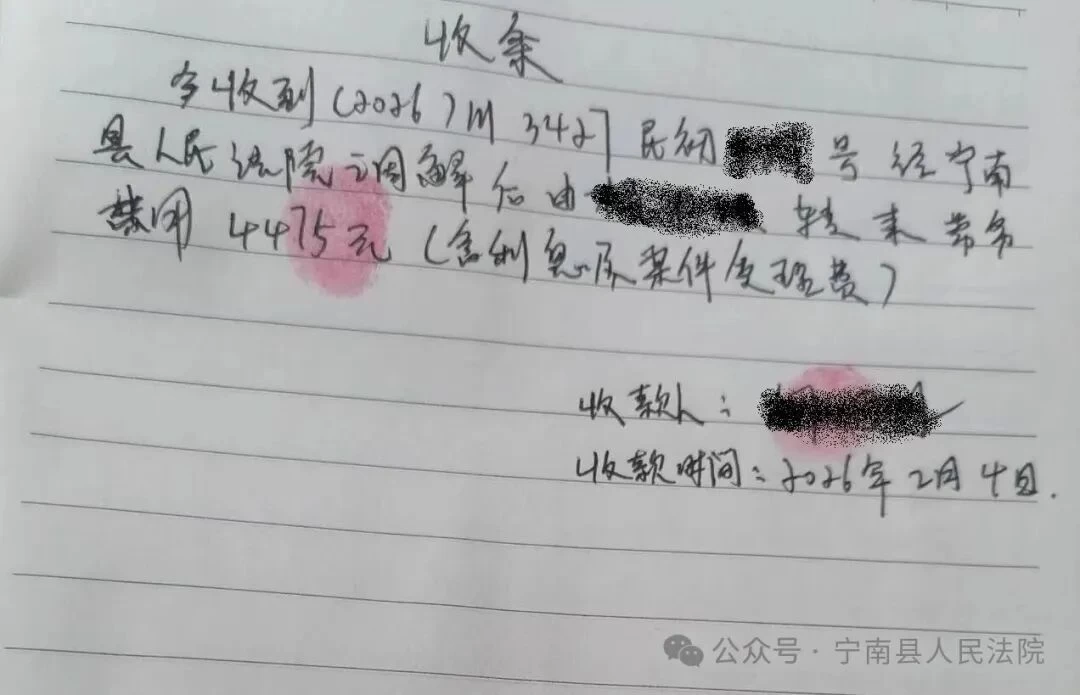 收条
今收到(2026)川3427民初 号 经宁南
县人民法院调解后由 转来劳务
费用4475元(含利息及案件受理费)
收款人:
收款时间:2026年2月4日.
公众号·宁南县人民法院